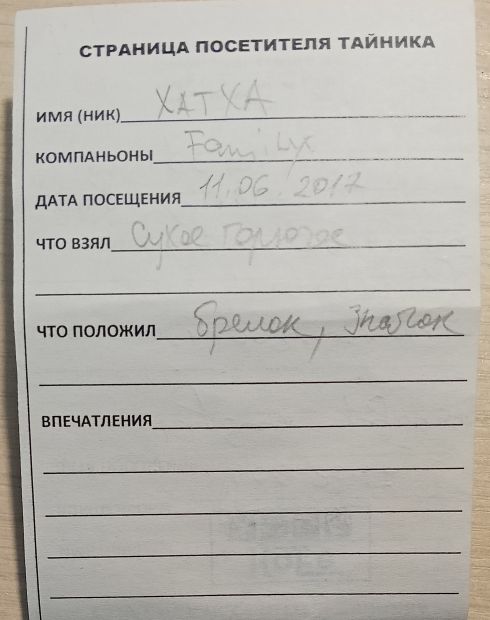 СТРАНИЦА ПОСЕТИТЕЛЯ ТАЙНИКА
ИМЯ (НИК) ХАТХА
КОМПАНЬОНЫ Family
ДАТА ПОСЕЩЕНИЯ 11.06.2017
ЧТО ВЗЯЛ Сухое горючее
ЧТО ПОЛОЖИЛ брелок, значок
ВПЕЧАТЛЕНИЯ